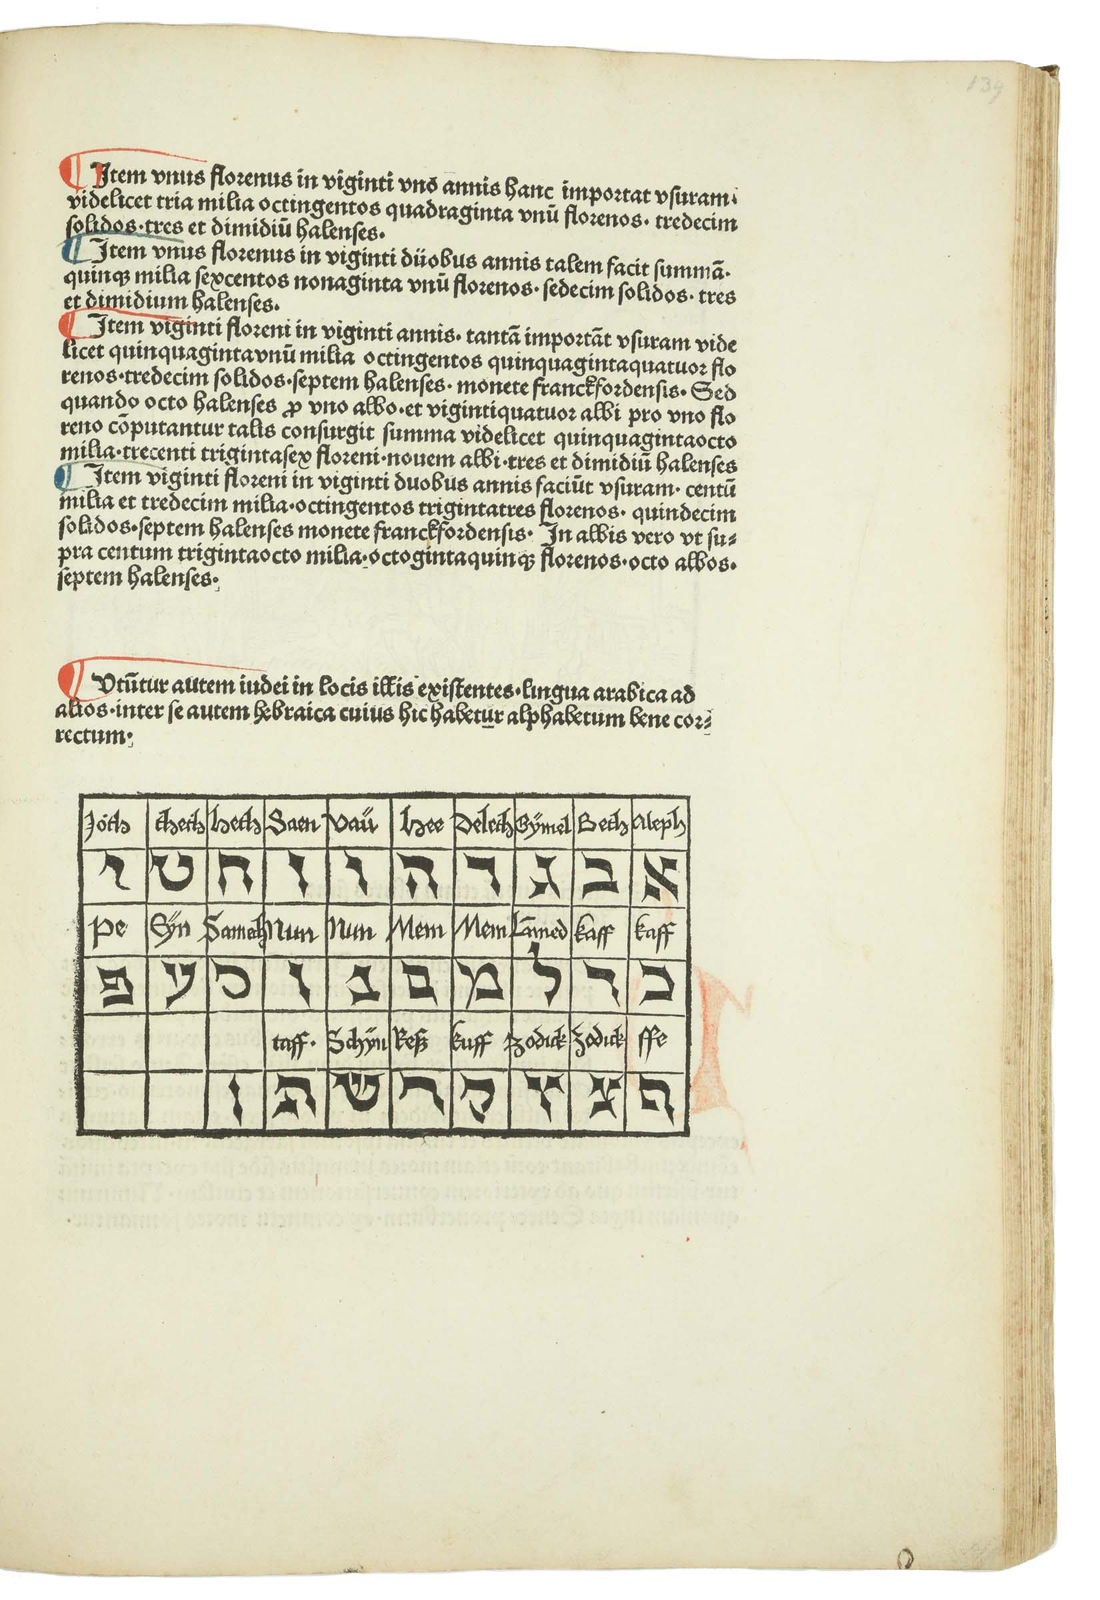 139
¶ Item vnus florenus in viginti vnō annis hanc importat vsuram·
videlicet tria milia octingentos quadraginta vnū florenos· tredecim
solidos·tres et dimidiū halenses·
¶ Item vnus florenus in viginti düobus annis talem facit summā·
quinqꝫ milia sexcentos nonaginta vnū florenos· sedecim solidos· tres
et dimidium halenses·
¶ Item viginti floreni in viginti annis· tantā importāt vsuram vide
licet quinquagintavnū milia octingentos quinquagintaquatuor flo
renos·tredecim solidos·septem halenses· monete franckfordensis· Sed
quando octo halenses ꝓ vno albo·et vigintiquatuor albi pro vno flo
reno cōputantur talis consurgit summa videlicet quinquagintaocto
milia·trecenti trigintasex floreni·nouem albi·tres et dimidiū halenses
¶ Item viginti floreni in viginti duobus annis faciūt vsuram· centū
milia et tredecim milia·octingentos trigintatres florenos· quindecim
solidos·septem halenses monete franckfordensis· In albis vero vt su⸗
pra centum trigintaocto milia·octogintaquinqꝫ florenos·octo albos·
septem halenses·
¶ Vtūtur autem iudei in locis illis existentes·lingua arabica ad
alios·inter se autem hebraica cuius hic habetur alphabetum bene cor⸗
rectum·
Joth theth heth Saen Vaü hee Deleth Gÿmel Beth Aleph
א ב ג ד ה ו ז ח ט י
pe Sÿn Samech Nun Nun Mem Mem Lamed kaff kaff
כ ך ל מ ם נ ן ס ע פ
taff· Schÿn Reß kuff zodick zodick ffe
ף צ ץ ק ר ש ת ן